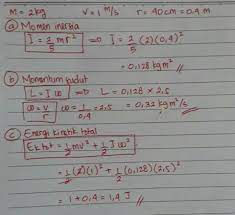 M = 2kg V = 1 m/s r = 40cm = 0.4 m
(a) Momen inersia
I = 2/5 mr² => I = 2/5 (2)(0,4)²
= 0,128 kgm²
(b) Momentum sudut
L = I ω => L = 0,128 × 2,5
ω = v/r ω = 1/0,4 = 2,5 = 0,32 kgm²/s
(c) Energi kinetik total
Ek tot = 1/2 mv² + 1/2 I ω²
= 1/2 (2)(1)² + 1/2 (0,128)(2,5)²
= 1 + 0,4 = 1,4 J